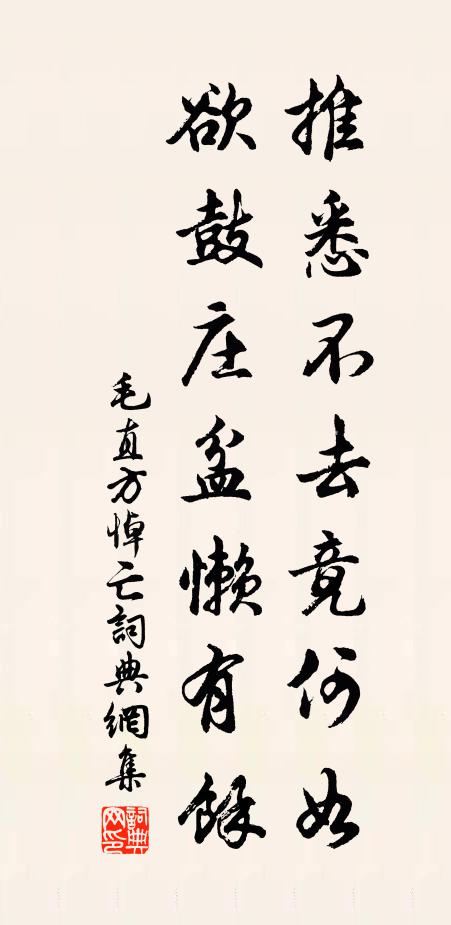 推悉不去竟何如
欲鼓庄盆懒有餘
毛直方悼亡詞典網集
詞典網印